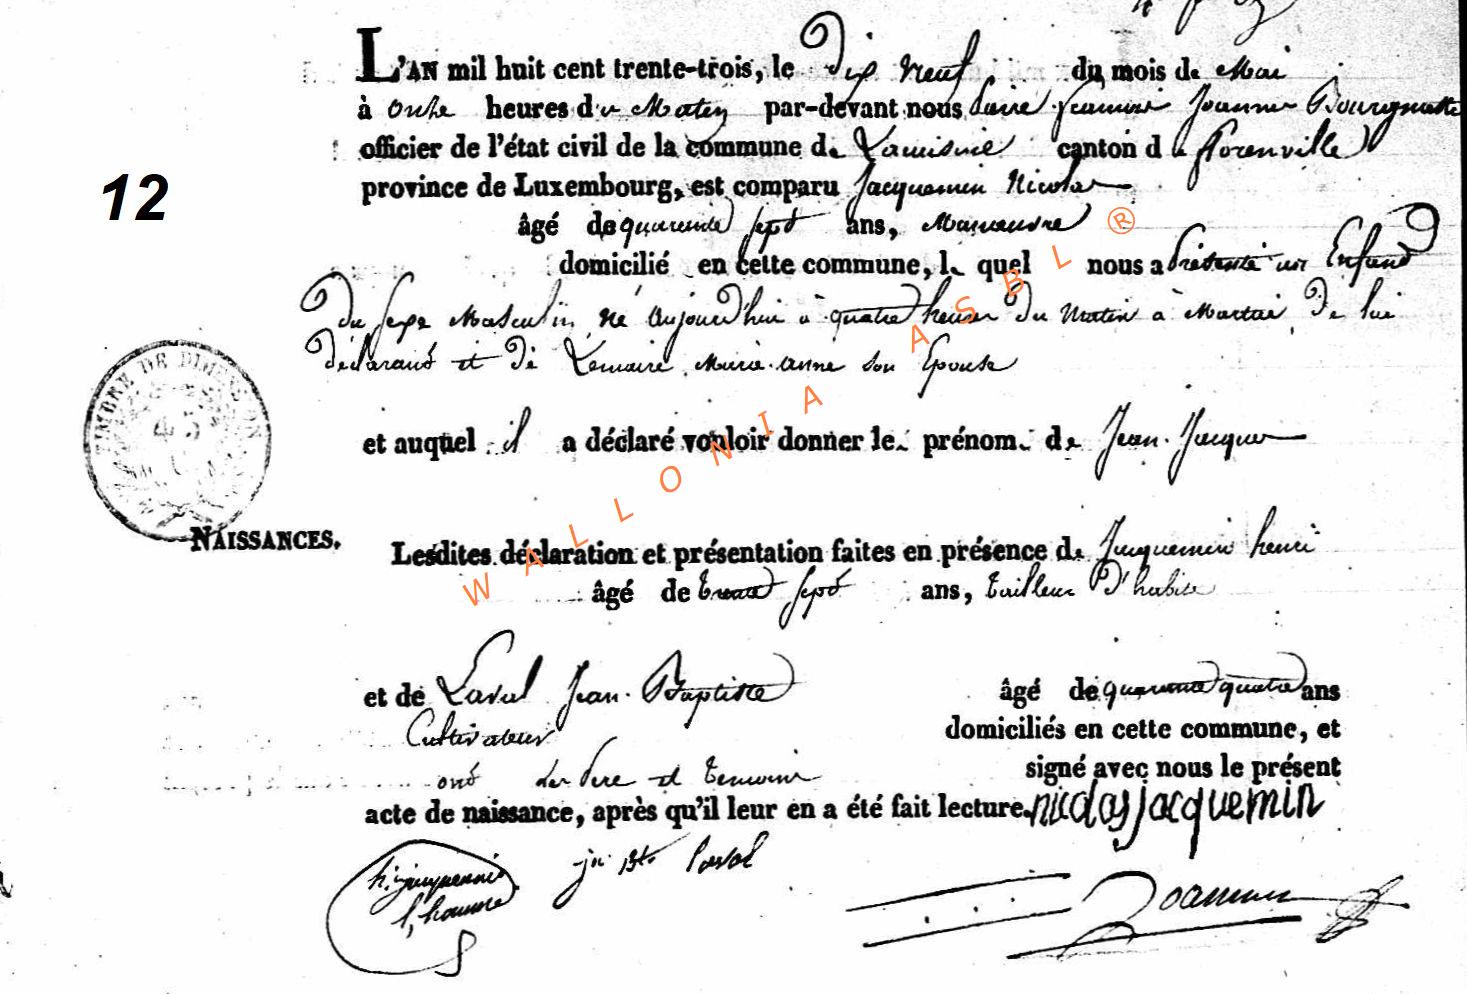 L'AN mil huit cent trente-trois, le Dix neuf du mois de Mai
à onhe heures du Matin par-devant nous Joannes Bourgnette
officier de l'état civil de la commune de canton de florenville
12
province de Luxembourg, est comparu Jacquemin Nicolas
âgé de quarente sept ans, Manoeuvre
domicilié en cette commune, le quel nous a présenté un Enfand
Du sexe Masculin né aujourd'hui à quatre heures du Matin à Martué De lui
déclarant et De Lemaire Marie-anne son Epouse
TIMBRE DE DIMENSION
45
et auquel il a déclaré vouloir donner le prénom de Jean-Jacques
NAISSANCES.
Lesdites déclaration et présentation faites en présence de Jacquemin henri
âgé de trente sept ans, tailleur D'habits
et de Laval Jean-Baptiste âgé de quarente quatre ans
Cultivateur domiciliés en cette commune, et
ont les Pere et temoins signé avec nous le présent
acte de naissance, après qu'il leur en a été fait lecture. nicolas jacquemin
h. jacquemin jn Bte Laval
Joannes
WALLONIA ASBL ®